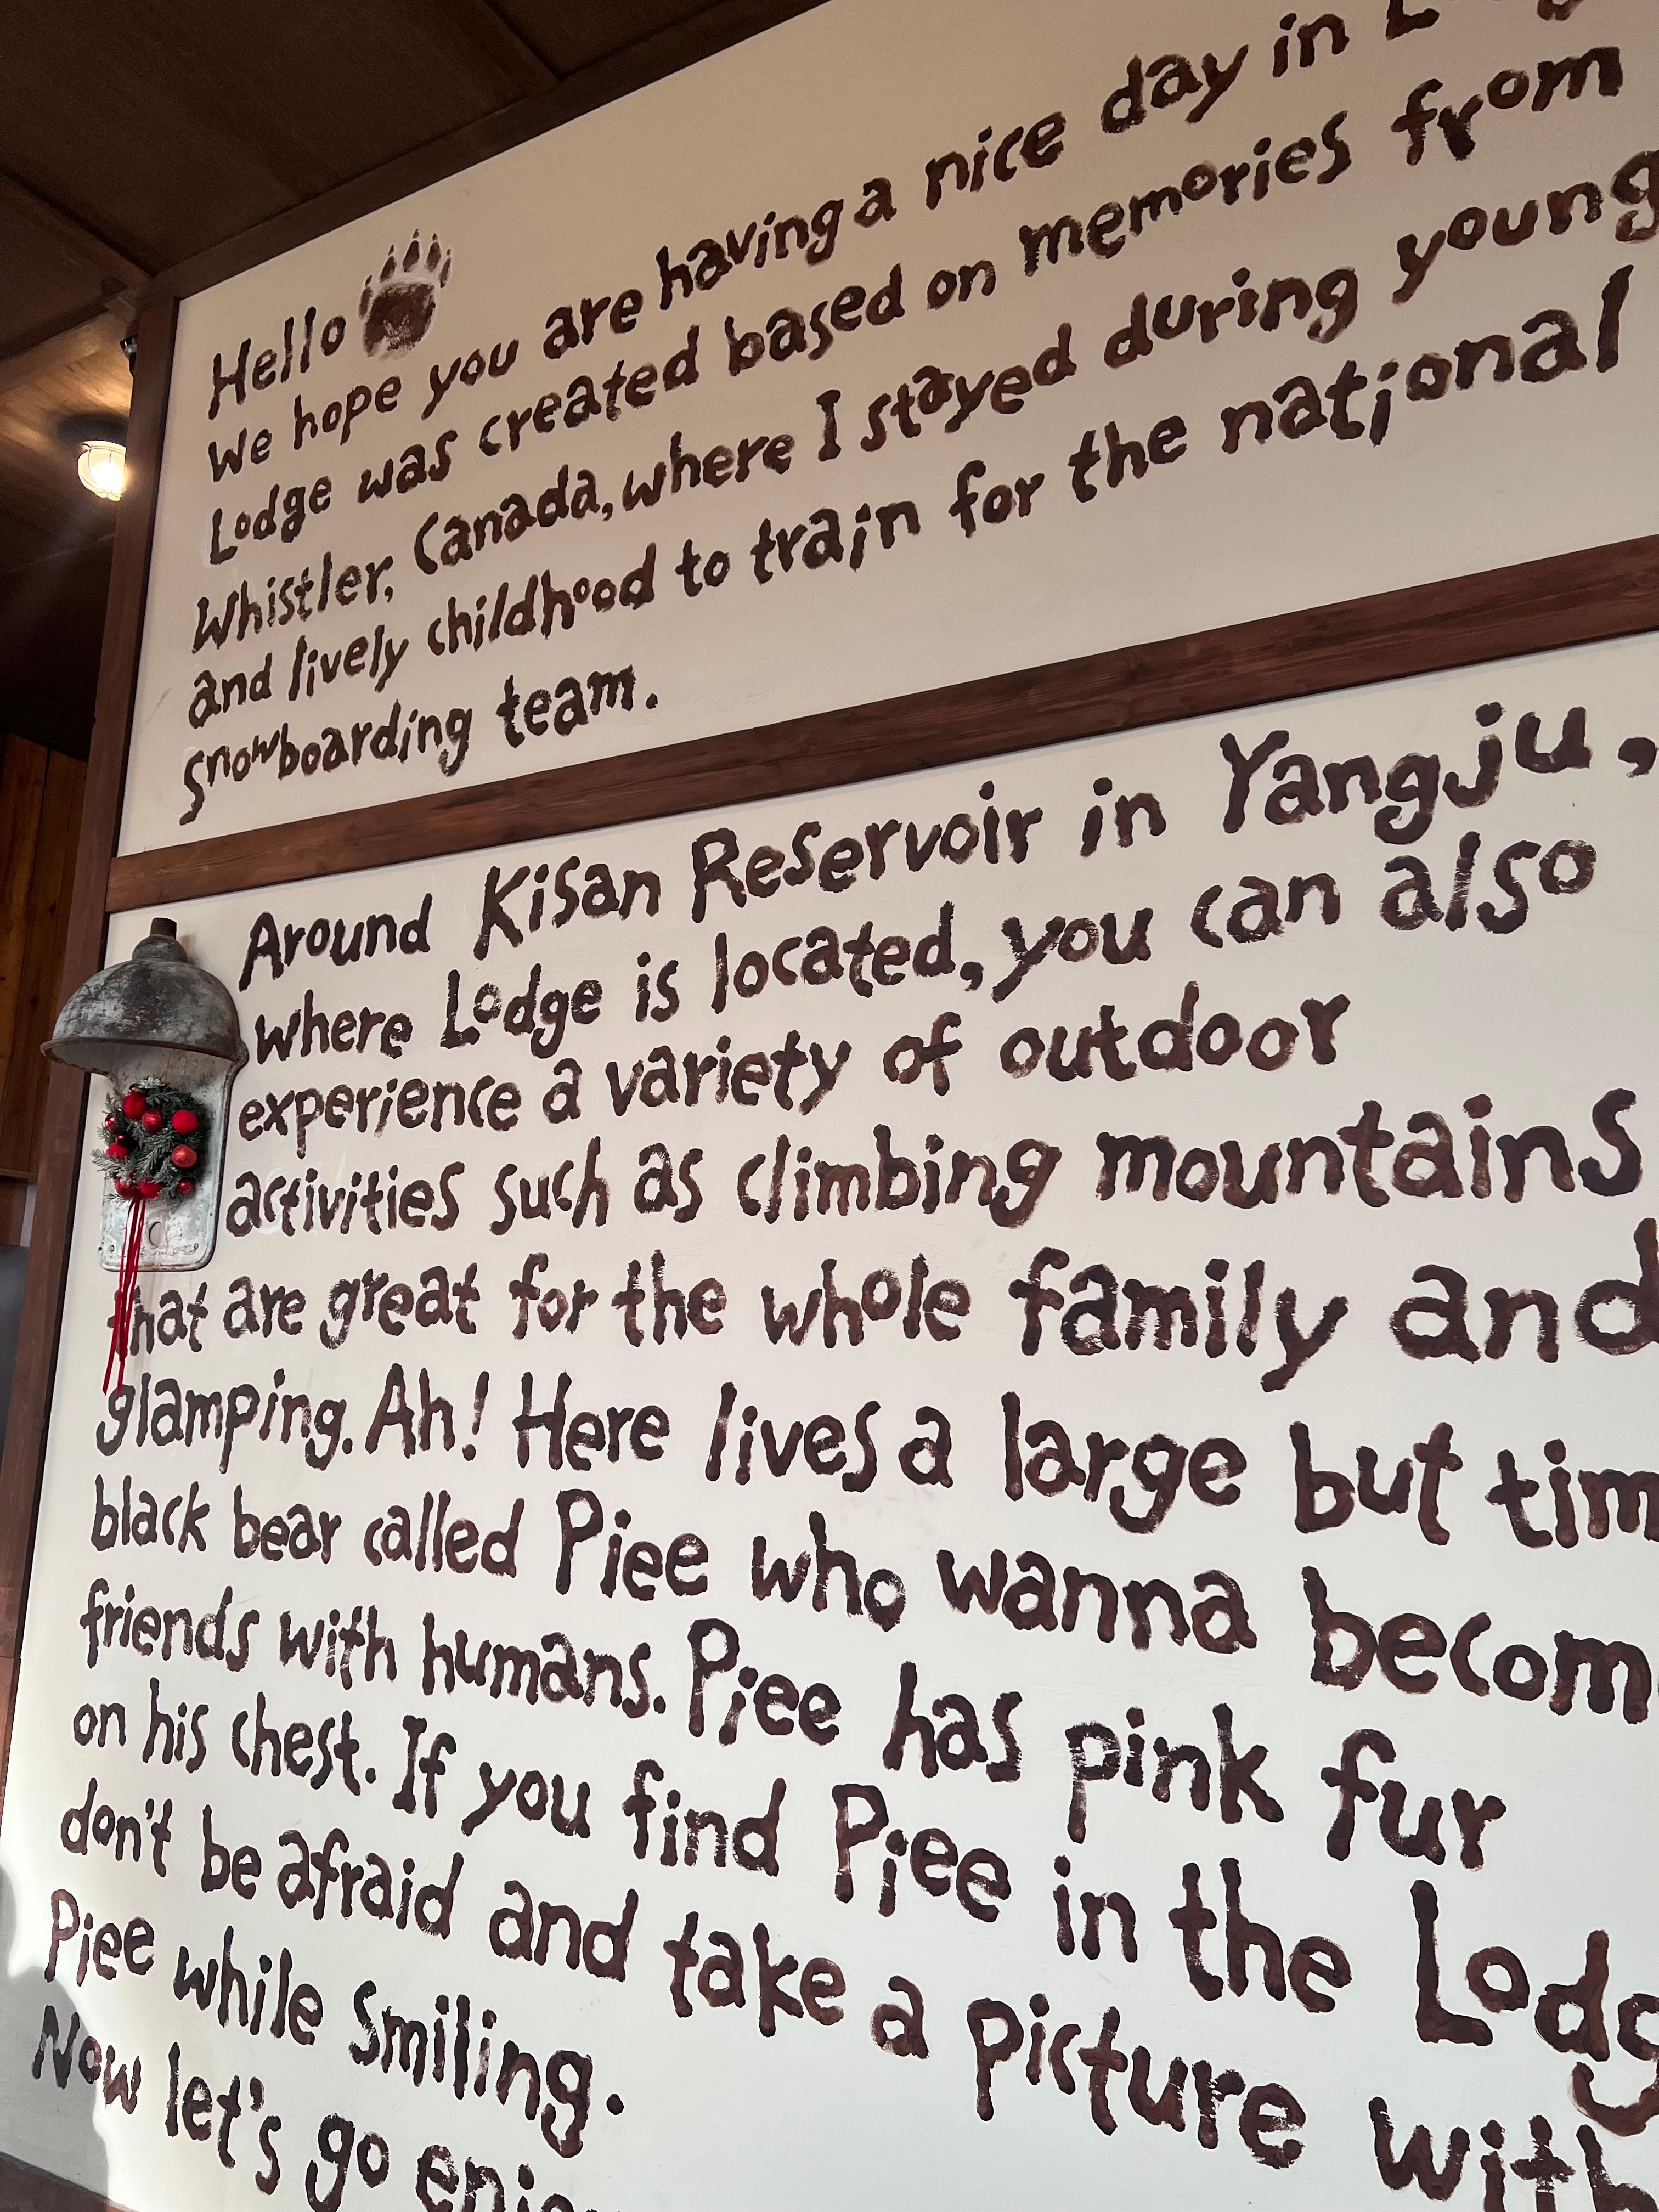 Hello
We hope you are having a nice day in
Lodge was created based on memories from
Whistler, Canada, where I stayed during young
and lively childhood to train for the national
snowboarding team.
Around Kisan Reservoir in Yangju,
where Lodge is located, you can also
experience a variety of outdoor
activities such as climbing mountains
that are great for the whole family and
glamping. Ah! Here lives a large but
black bear called Piee who wanna
friends with humans. Piee has pink fur
on his chest. If you find Piee in the
don't be afraid and take a picture with
Piee while smiling.
Now let's go